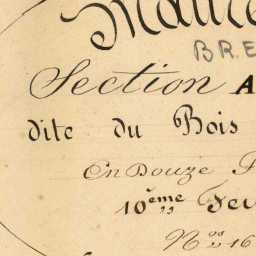 BRE
Section A
dite du Bois
En Douze F
10ème Feu
Nos 16